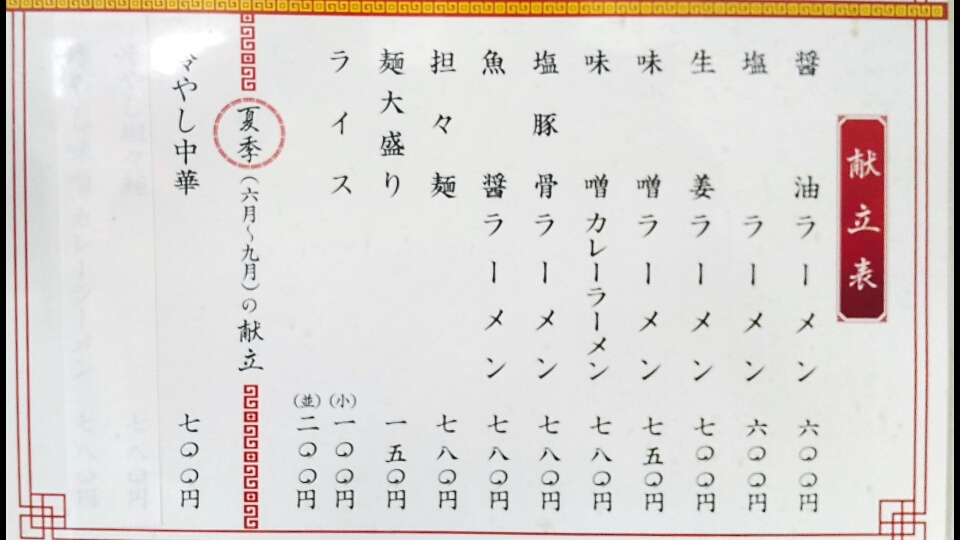 献立表
醤油ラーメン 六〇〇円
塩ラーメン 六〇〇円
生姜ラーメン 七〇〇円
味噌ラーメン 七五〇円
味噌カレーラーメン 七八〇円
塩豚骨ラーメン 七八〇円
魚醤ラーメン 七八〇円
担々麺 七八〇円
麺大盛り 一五〇円
ライス (小)一〇〇円
(並)二〇〇円
夏季(六月〜九月)の献立
冷やし中華 七〇〇円